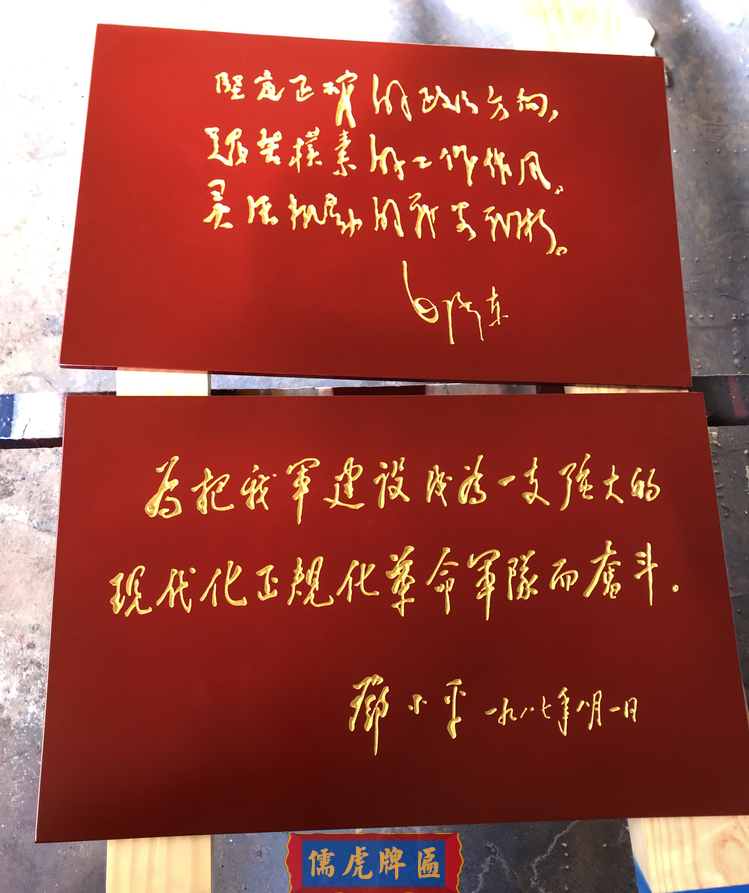 坚定正確的政治方向，
艰苦樸素的工作作风，
灵活机动的战略战术。
毛泽东
为把我軍建设成为一支強大的
現代化正規化革命軍隊而奮斗。
鄧小平 一九八七年八月一日
儒虎牌匾